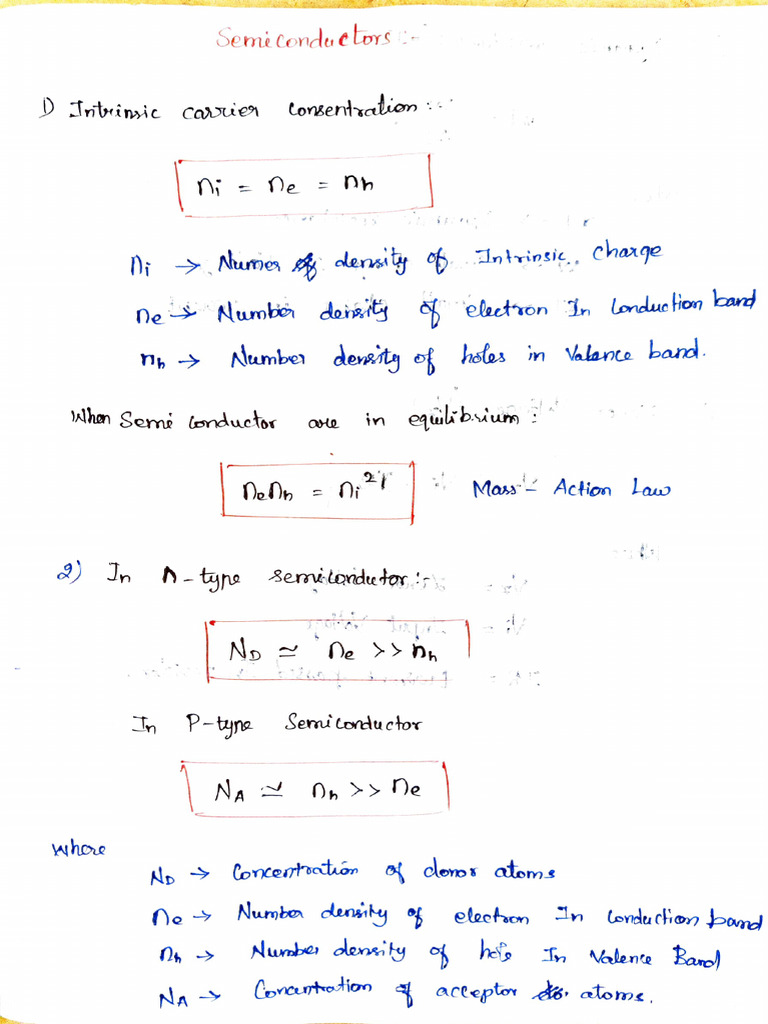 Semiconductors :-
1) Intrinsic carrier Consentration :-
ni = ne = nh
ni → Numer of density of Intrinsic charge
ne → Number density of electron In Conduction band
nh → Number density of holes in Valence band.
When Semi Conductor are in equilibrium :
nenh = ni²
Mass - Action Law
2) In n-type semiconductor :-
ND ≃ ne >> nh
In P-type Semiconductor
NA ≃ nh >> ne
where
ND → Concentration of donor atoms
ne → Number density of electron In Conduction band
nh → Number density of hole In Valence Band
NA → Concentration of acceptor atoms.